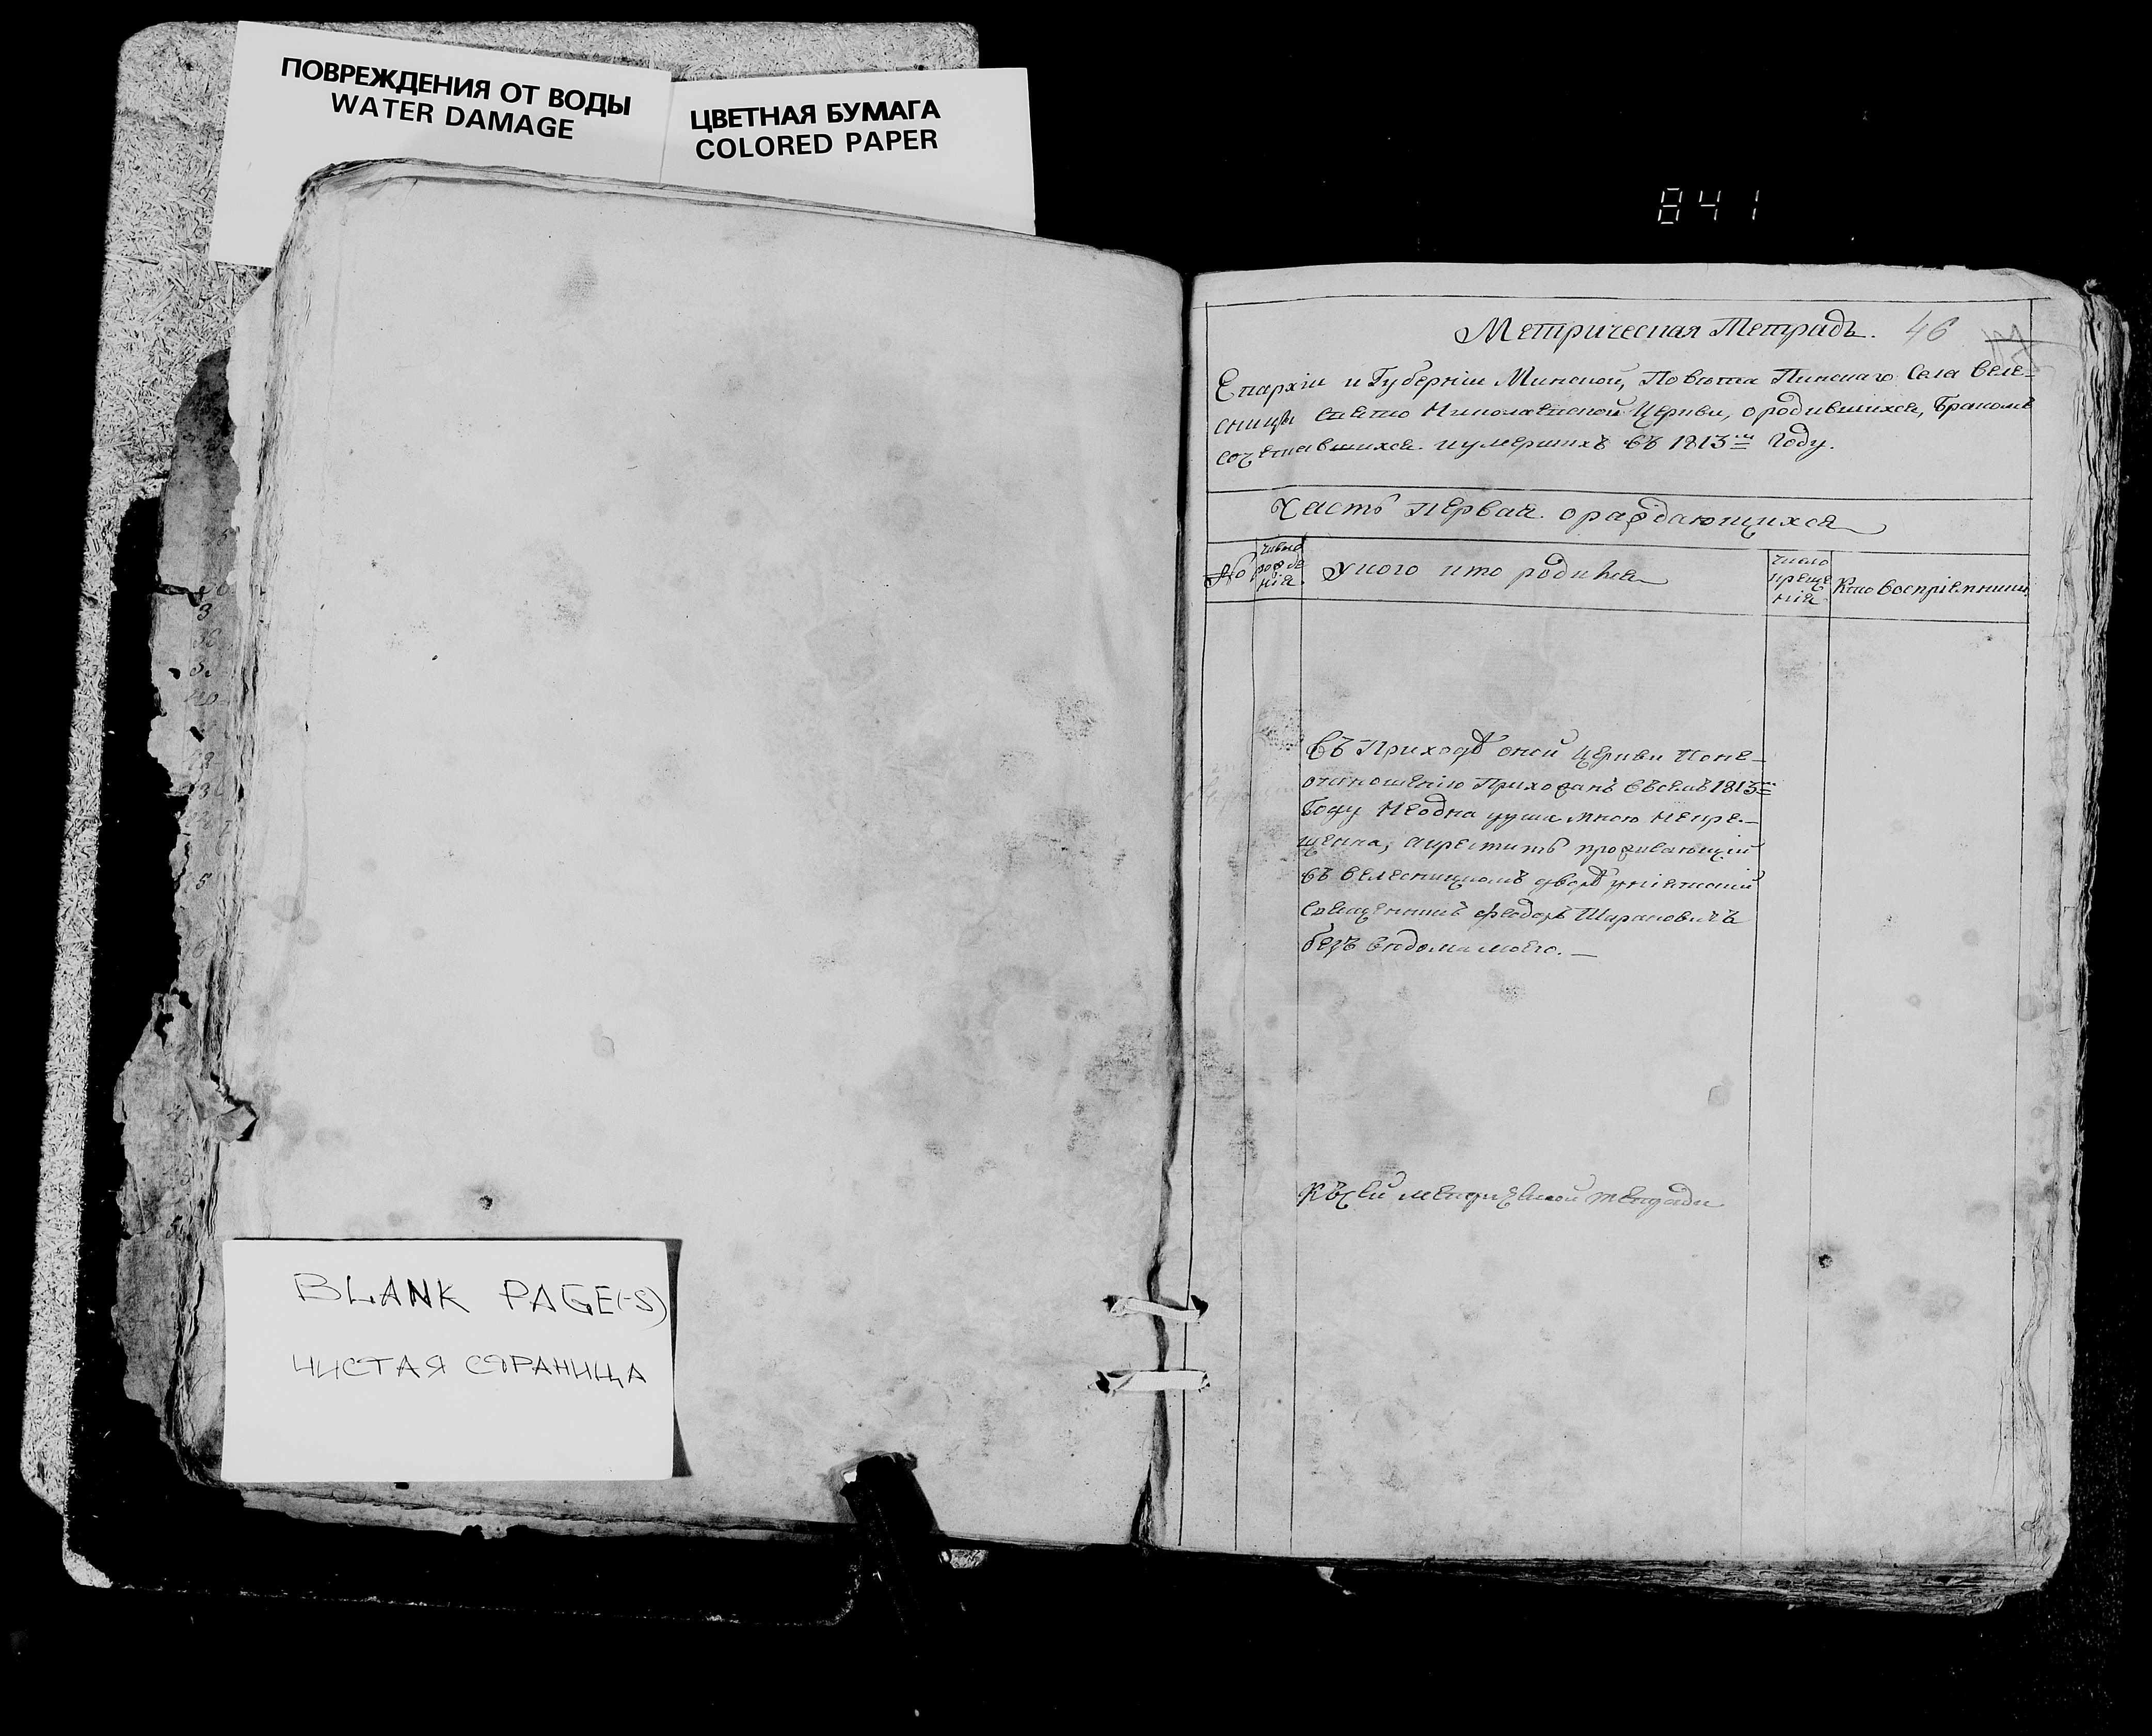 ПОВРЕЖДЕНИЯ ОТ ВОДЫ
WATER DAMAGE
ЦВЕТНАЯ БУМАГА
COLORED PAPER
841
Метрическая Тетрадь. 46
Епархіи и Губерніи Минской, Повѣта Пинскаго Села Веле-
сницы Свято Николаевской Церкви, о родившихся, бракомъ
сочетавшихся и умершихъ въ 1813м Году.
Часть первая о раждающихся
№
Число рожде нія.
У кого кто родился
Число креще нія
Кто воспріемники
Въ Приходѣ оной Церкви по не-
отношенію Прихожанъ въ семъ 1813м
Году не одна душа мною не кре-
щенна, а креститъ проживающій
въ Велесницкомъ дворѣ уніятскій
Священникъ Феодоръ Шарановичъ
безъ вѣдома моего. —
Къ сей метрической тетради
BLANK PAGE(-S)
ЧИСТАЯ СТРАНИЦА